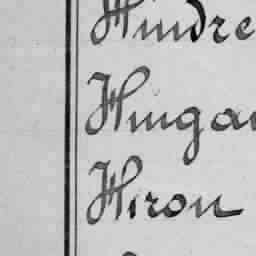 Hindre
Hinga
Hiron